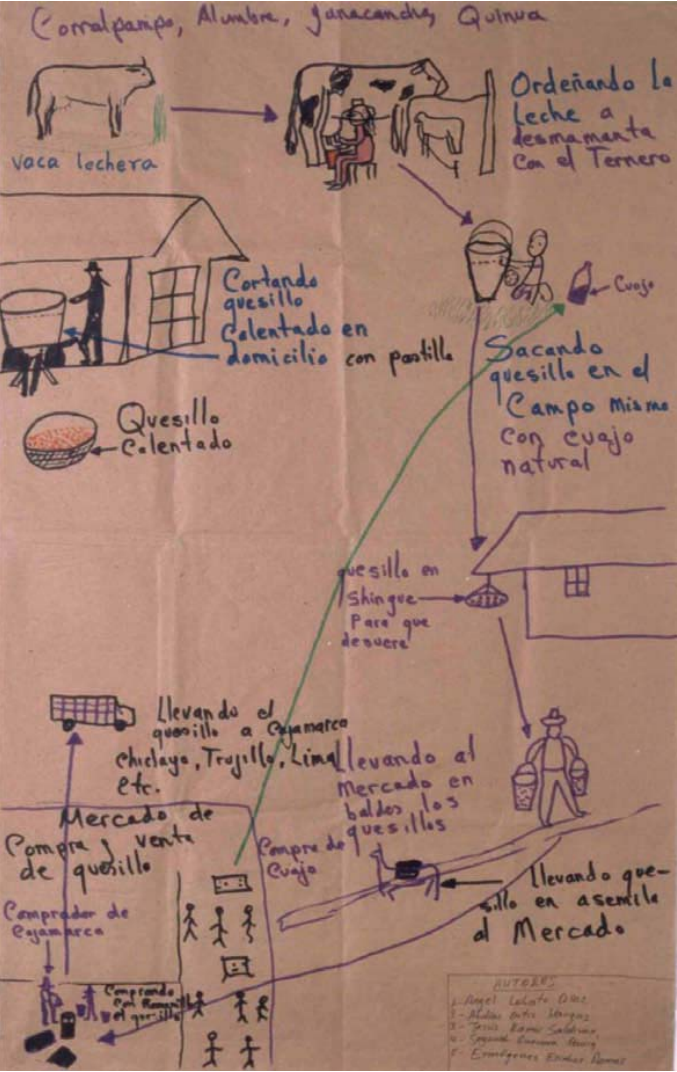 Corralpampa, Alumbre, Yanacancha, Quinua
vaca lechera
Ordeñando la
leche a
desmamanta
Con el Ternero
Cuajo
Cortando
quesillo
Calentado en
domicilio con pastilla
Sacando
quesillo en el
Campo mismo
con cuajo
natural
Quesillo
Calentado
quesillo en
shingue
Para que
desuere
Llevando el
quesillo a Cajamarca
Chiclayo, Trujillo, Lima
etc.
Llevando al
Mercado en
baldes los
quesillos
Mercado de
Compra y venta
de quesillo
Compra de
Cuajo
llevando que-
sillo en asemila
al Mercado
Comprador de
Cajamarca
Comprando
con Romanilla
el quesillo
AUTORES
1- Angel
2-
3- Jesús
4- Segundo
5-